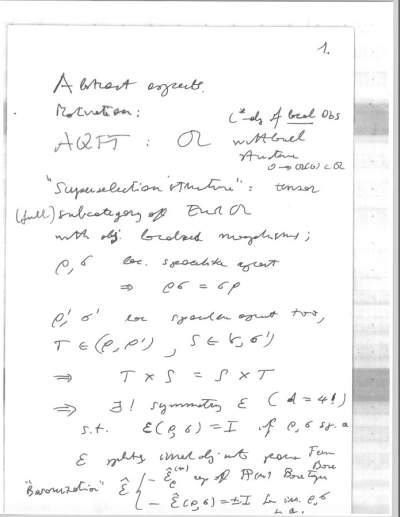 1.
Abstract aspects.
Motivation:
AQFT : 𝔄 C*-alg of local Obs
with local
structure
O → 𝔄(O) ⊂ 𝔄
"Superselection structure": tensor
(full) subcategory of End 𝔄
with obj. localized morphisms;
ρ, σ loc. spacelike apart
⇒ ρσ = σρ
ρ', σ' loc spacelike apart too,
T ∈ (ρ, ρ') , S ∈ (σ, σ')
⇒ T × S = S × T
⇒ ∃! symmetry ε (d = 4!)
s.t. ε(ρ, σ) = I if ρ, σ sp. a
ε splits irred obj. into para Fermi
Bose
"Bosonization" ε̂ { - ε̂_ρ^(n) rep of P(n) Bose type
- ε̂(ρ, σ) = ±I for irr. ρ, σ